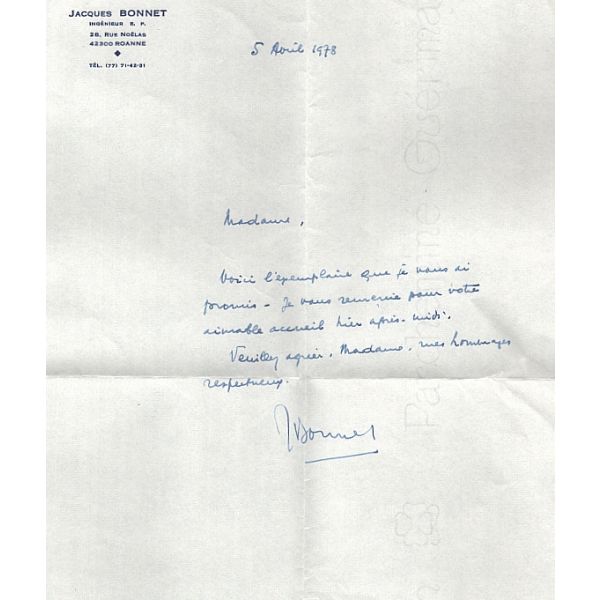 JACQUES BONNET
INGÉNIEUR E. P.
28, RUE NOËLAS
42300 ROANNE
TÉL. (77) 71-42-31
5 Avril 1978
Madame,
Voici l'exemplaire que je vous ai
promis - Je vous remercie pour votre
aimable accueil hier après-midi.
Veuillez agréer, Madame, mes hommages
respectueux.
JBonnet